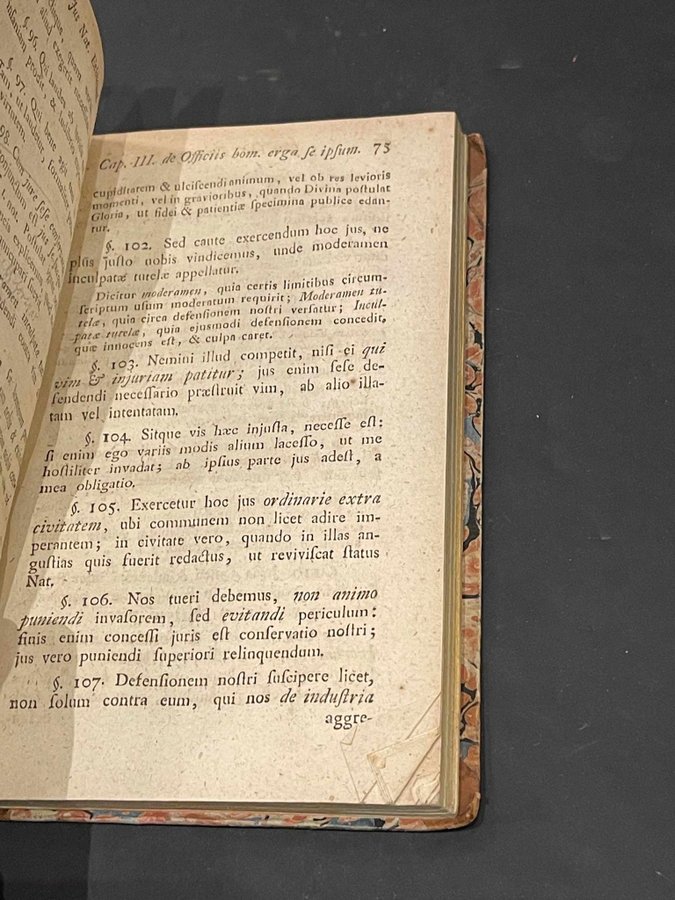 Jus Nat.
§. 97.
Cap. III. de Officiis hom. erga ſe ipſum. 75
cupiditatem & ulciſcendi animum, vel ob res levioris
momenti, vel in gravioribus, quando Divina poſtulat
Gloria, ut fidei & patientiæ ſpecimina publice edan-
tur.
§. 102. Sed caute exercendum hoc jus, ne
plus juſto nobis vindicemus, unde moderamen
inculpatæ tutelæ appellatur.
Dicitur moderamen, quia certis limitibus circum-
ſcriptum uſum moderatum requirit; Moderamen tu-
telæ, quia circa defenſionem noſtri verſatur; Incul-
patæ tutelæ, quia ejusmodi defenſionem concedit,
quæ innocens eſt, & culpa caret.
§. 103. Nemini illud competit, niſi ei qui
vim & injuriam patitur; jus enim ſeſe de-
fendendi neceſſario præſtruit vim, ab alio illa-
tam vel intentatam.
§. 104. Sitque vis hæc injuſta, neceſſe eſt:
ſi enim ego variis modis alium laceſſo, ut me
hoſtiliter invadat; ab ipſius parte jus adeſt, a
mea obligatio.
§. 105. Exercetur hoc jus ordinarie extra
civitatem, ubi communem non licet adire im-
perantem; in civitate vero, quando in illas an-
guſtias quis fuerit redactus, ut reviviſcat ſtatus
Nat.
§. 106. Nos tueri debemus, non animo
puniendi invaſorem, ſed evitandi periculum:
finis enim conceſſi juris eſt conſervatio noſtri;
jus vero puniendi ſuperiori relinquendum.
§. 107. Defenſionem noſtri ſuſcipere licet,
non ſolum contra eum, qui nos de induſtria
aggre-